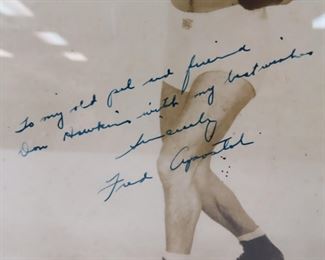 To my old pal and friend
Don Hawkins with my best wishes
Sincerely
Fred Apostoli